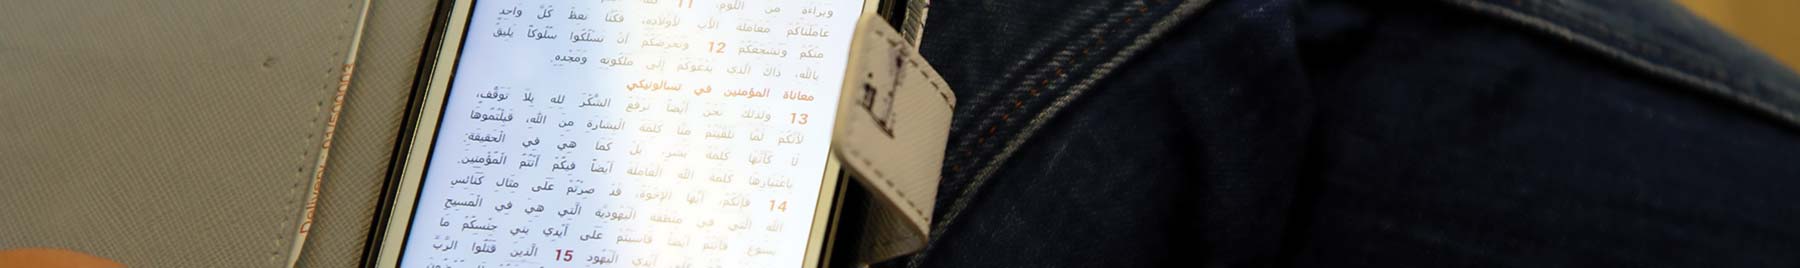 وبراءة من اللوم، 11
عاملناكم معاملة الأب لأولاده، فكنا نعظ كل واحد
منكم ونشجعكم 12 ونحرضكم أن تسلكوا سلوكا يليق
بالله، ذاك الذي يدعوكم إلى ملكوته ومجده.
معاناة المؤمنين في تسالونيكي
13 ولذلك نحن أيضا نرفع الشكر لله بلا توقف،
لأنكم لما تلقيتم منا كلمة البشارة من الله، قبلتموها
لا كأنها كلمة بشر، بل كما هي في الحقيقة:
باعتبارها كلمة الله العاملة أيضا فيكم أنتم المؤمنين.
14 فإنكم، أيها الإخوة، قد صرتم على مثال كنائس
الله التي في منطقة اليهودية التي هي في المسيح
يسوع. فأنتم أيضا قاسيتم على أيدي بني جنسكم ما
على أيدي اليهود 15 الذين قتلوا الرب
Delivery: